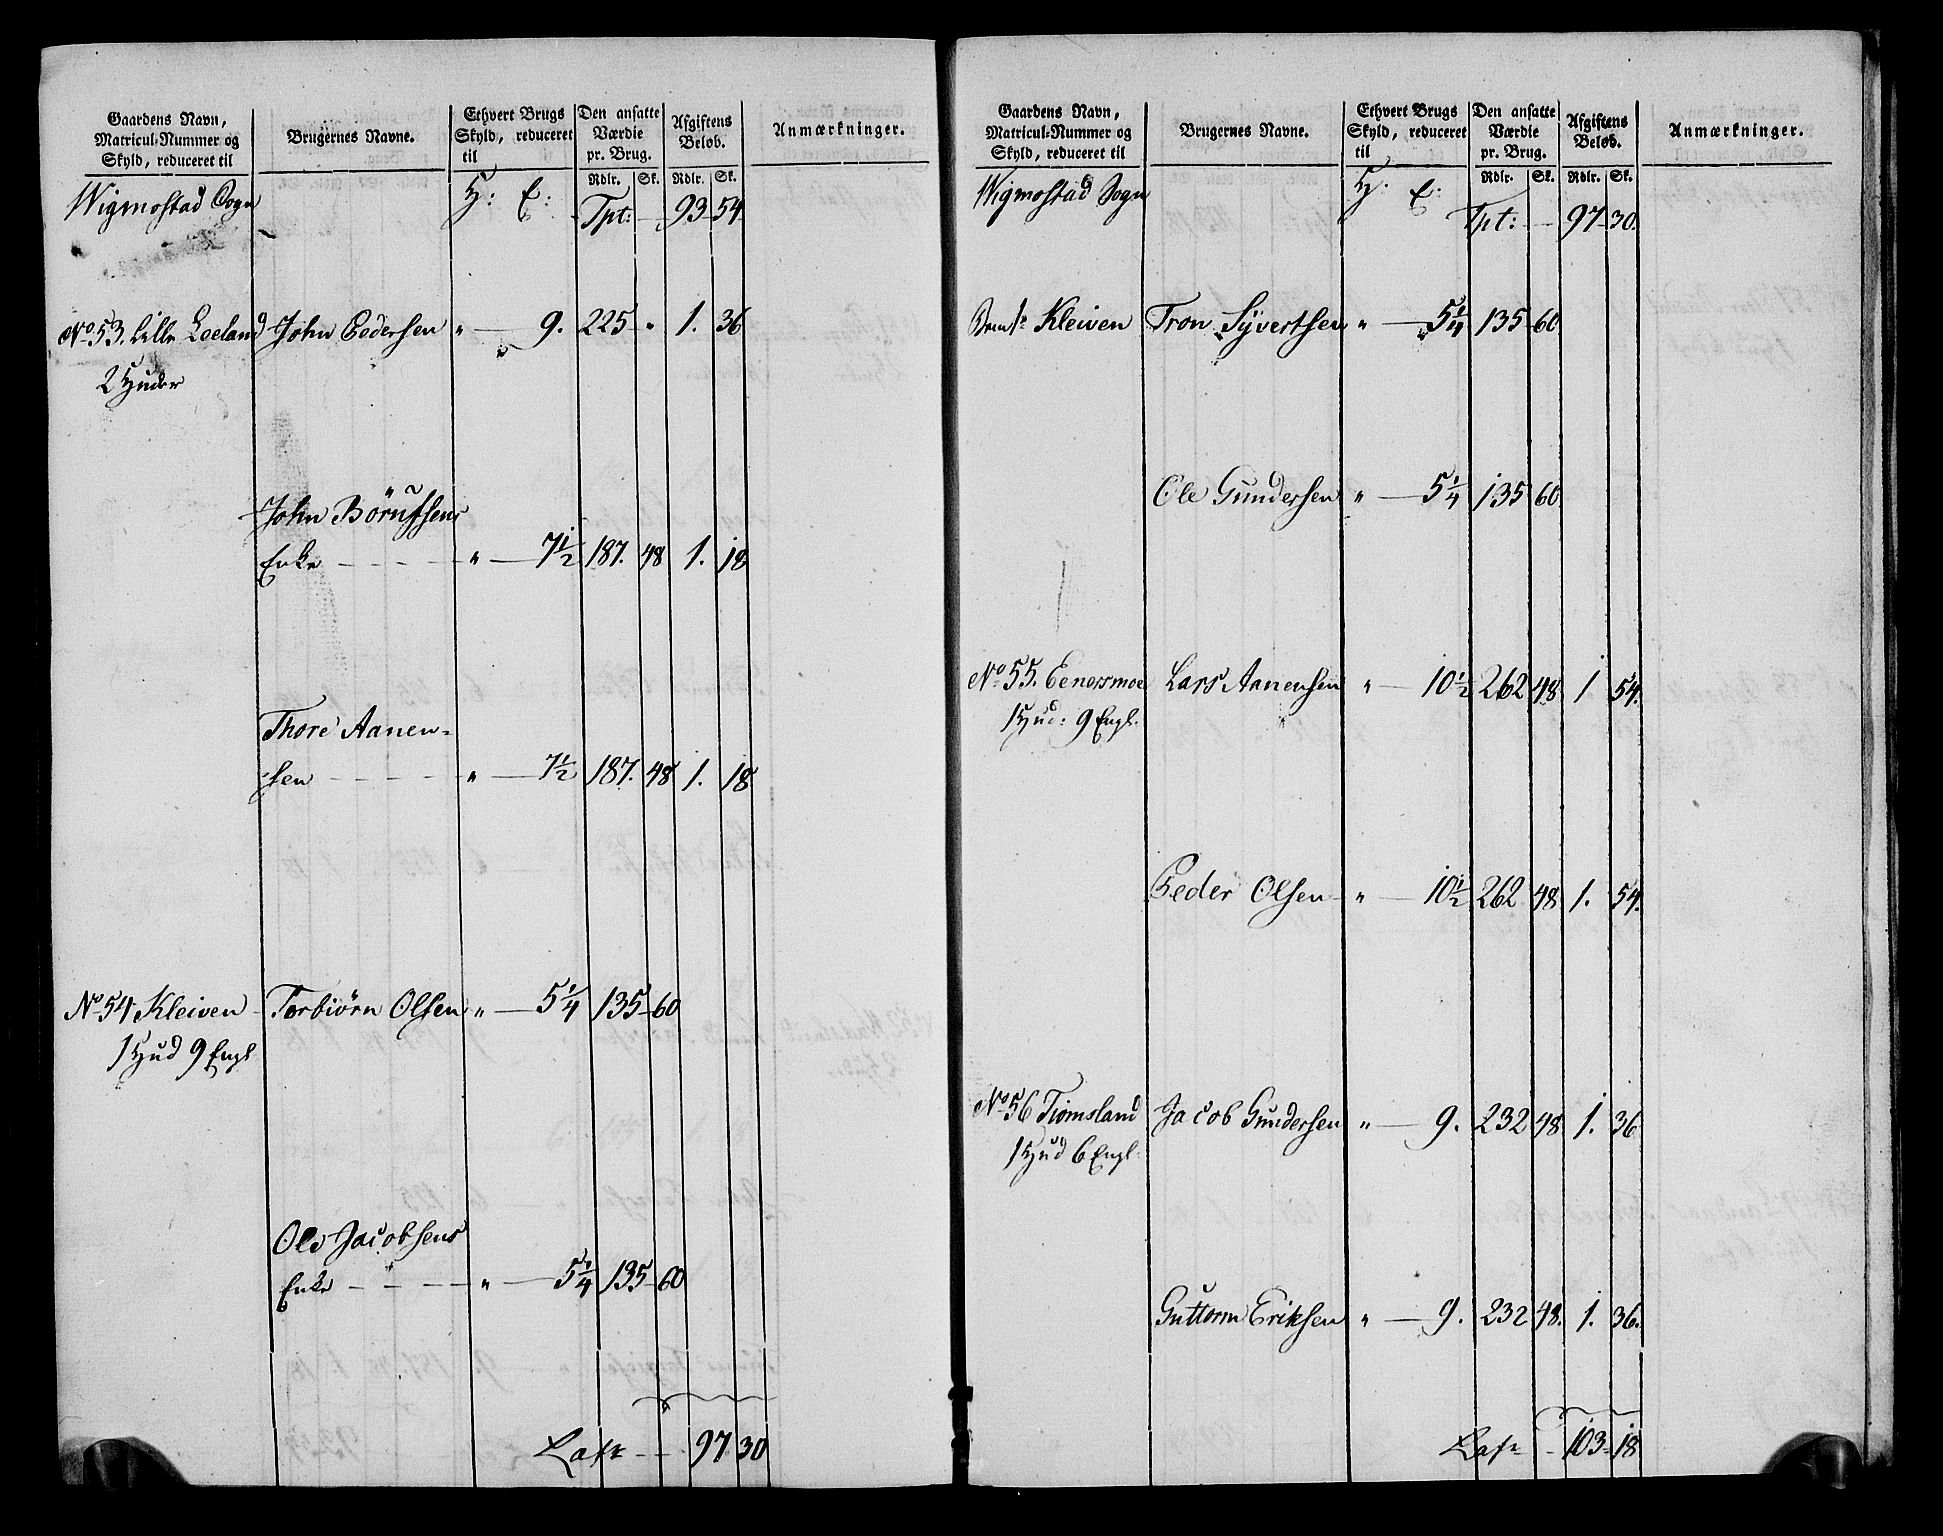 Gaardens Navn,
Matricul-Nummer og
Skyld, reduceret til
Brugernes Navne.
Ethvert Brugs
Skyld, reduceret
til
Den ansatte
Værdie
pr. Brug.
Afgiftens
Beløb.
Anmærkninger.
Rdlr. Sk. Rdlr. Sk.
Wigmostad Sogn H: E: Tpt: 93 54
No 53. Lille Leeland John Pedersen " 9. 225 " 1. 36
2 Huder
John Börufsens
Enke " 7 1/2 187. 48 1. 18
Thore Aanen-
sen " 7 1/2 187. 48 1. 18
No 54 Kleiven Torbiörn Olsen " 5 1/4 135 60
1 Hud 9 Engl
Ole Jacobsens
Enke " 5 1/4 135 60
Lats 97 30
Gaardens Navn,
Matricul-Nummer og
Skyld, reduceret til
Brugernes Navne.
Ethvert Brugs
Skyld, reduceret
til
Den ansatte
Værdie
pr. Brug.
Afgiftens
Beløb.
Anmærkninger.
Rdlr. Sk. Rdlr. Sk.
Wigmostad Sogn H: E: Tpt: 97 30.
Kleiven Tron Syvertsen " 5 1/4 135 60
Ole Gundersen " 5 1/4 135 60
No 55. Eenersmoe Lars Aanensen " 10 1/2 262 48 1 54.
1 Hud: 9 Engl.
Peder Olsen " 10 1/2 262 48 1. 54.
No 56 Tiomsland Jacob Gundersen " 9. 232 48 1. 36
1 Hud 6 Engl.
Guttorm Eriksen " 9. 232 48. 1. 36.
Lats 103 18